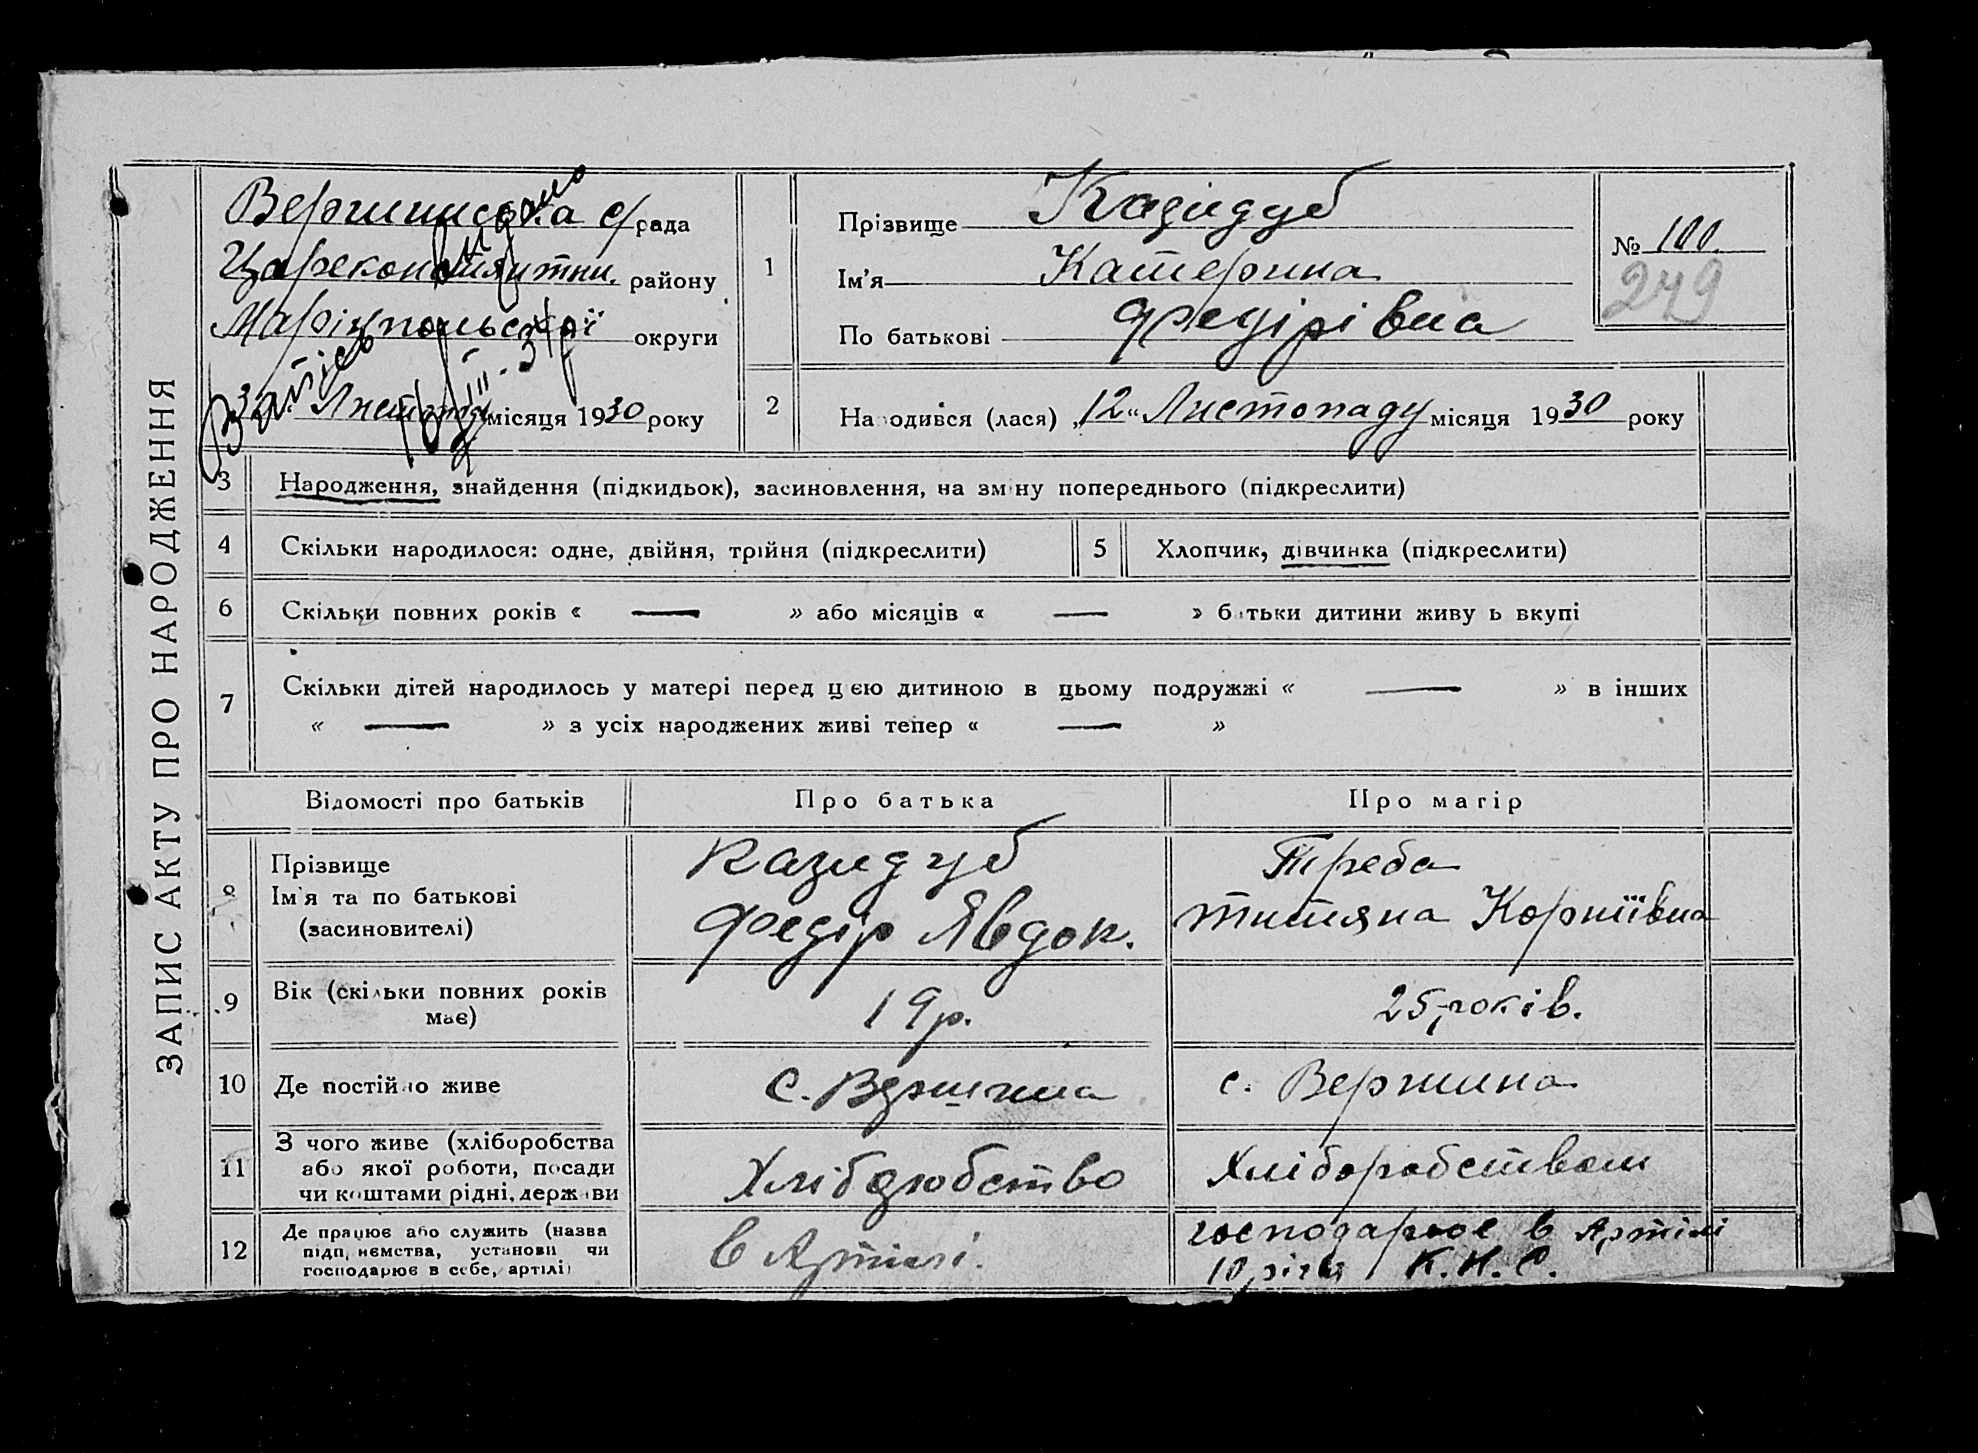 ЗАПИС АКТУ ПРО НАРОДЖЕННЯ
Вершинська с/рада
Цареконстянтин. району
Маріупольської округи
Листопад місяця 1930 року
Витяг видано
III-34 р
1
Прізвище Казидуб
Ім'я Катерина
По батькові Федірівна
№ 100
249
2
Народився (лася) „12" Листопаду місяця 1930 року
3 Народження, знайдення (підкидьок), засиновлення, на зміну попереднього (підкреслити)
4 Скільки народилося: одне, двійня, трійня (підкреслити)
5 Хлопчик, дівчинка (підкреслити)
6 Скільки повних років « — » або місяців « — » батьки дитини живуть вкупі
7 Скільки дітей народилось у матері перед цією дитиною в цьому подружжі « — » в інших
« — » з усіх народжених живі тепер « — »
Відомості про батьків Про батька Про матір
8 Прізвище
Ім'я та по батькові
(засиновителі)
Казидуб
Федір Явдок.
Треба
Титяна Корніївна
9 Вік (скільки повних років
має)
19 р.
25 років.
10 Де постійно живе
с. Вершина
с. Вершина
11 З чого живе (хліборобства
або якої роботи, посади
чи коштами рідні, держави
Хліборобство
Хліборобством
12 Де працює або служить (назва
підприємства, установи чи
господарює в себе, артілі)
в Артілі.
господарює в Артілі
К.Н.С.